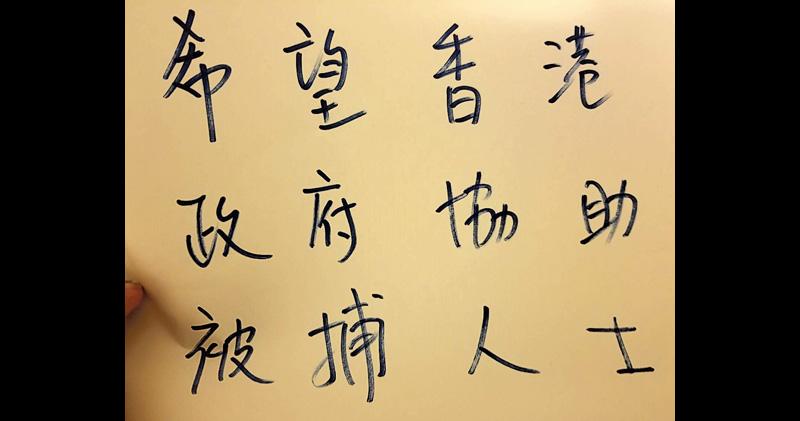 希望香港
政府協助
被捕人士